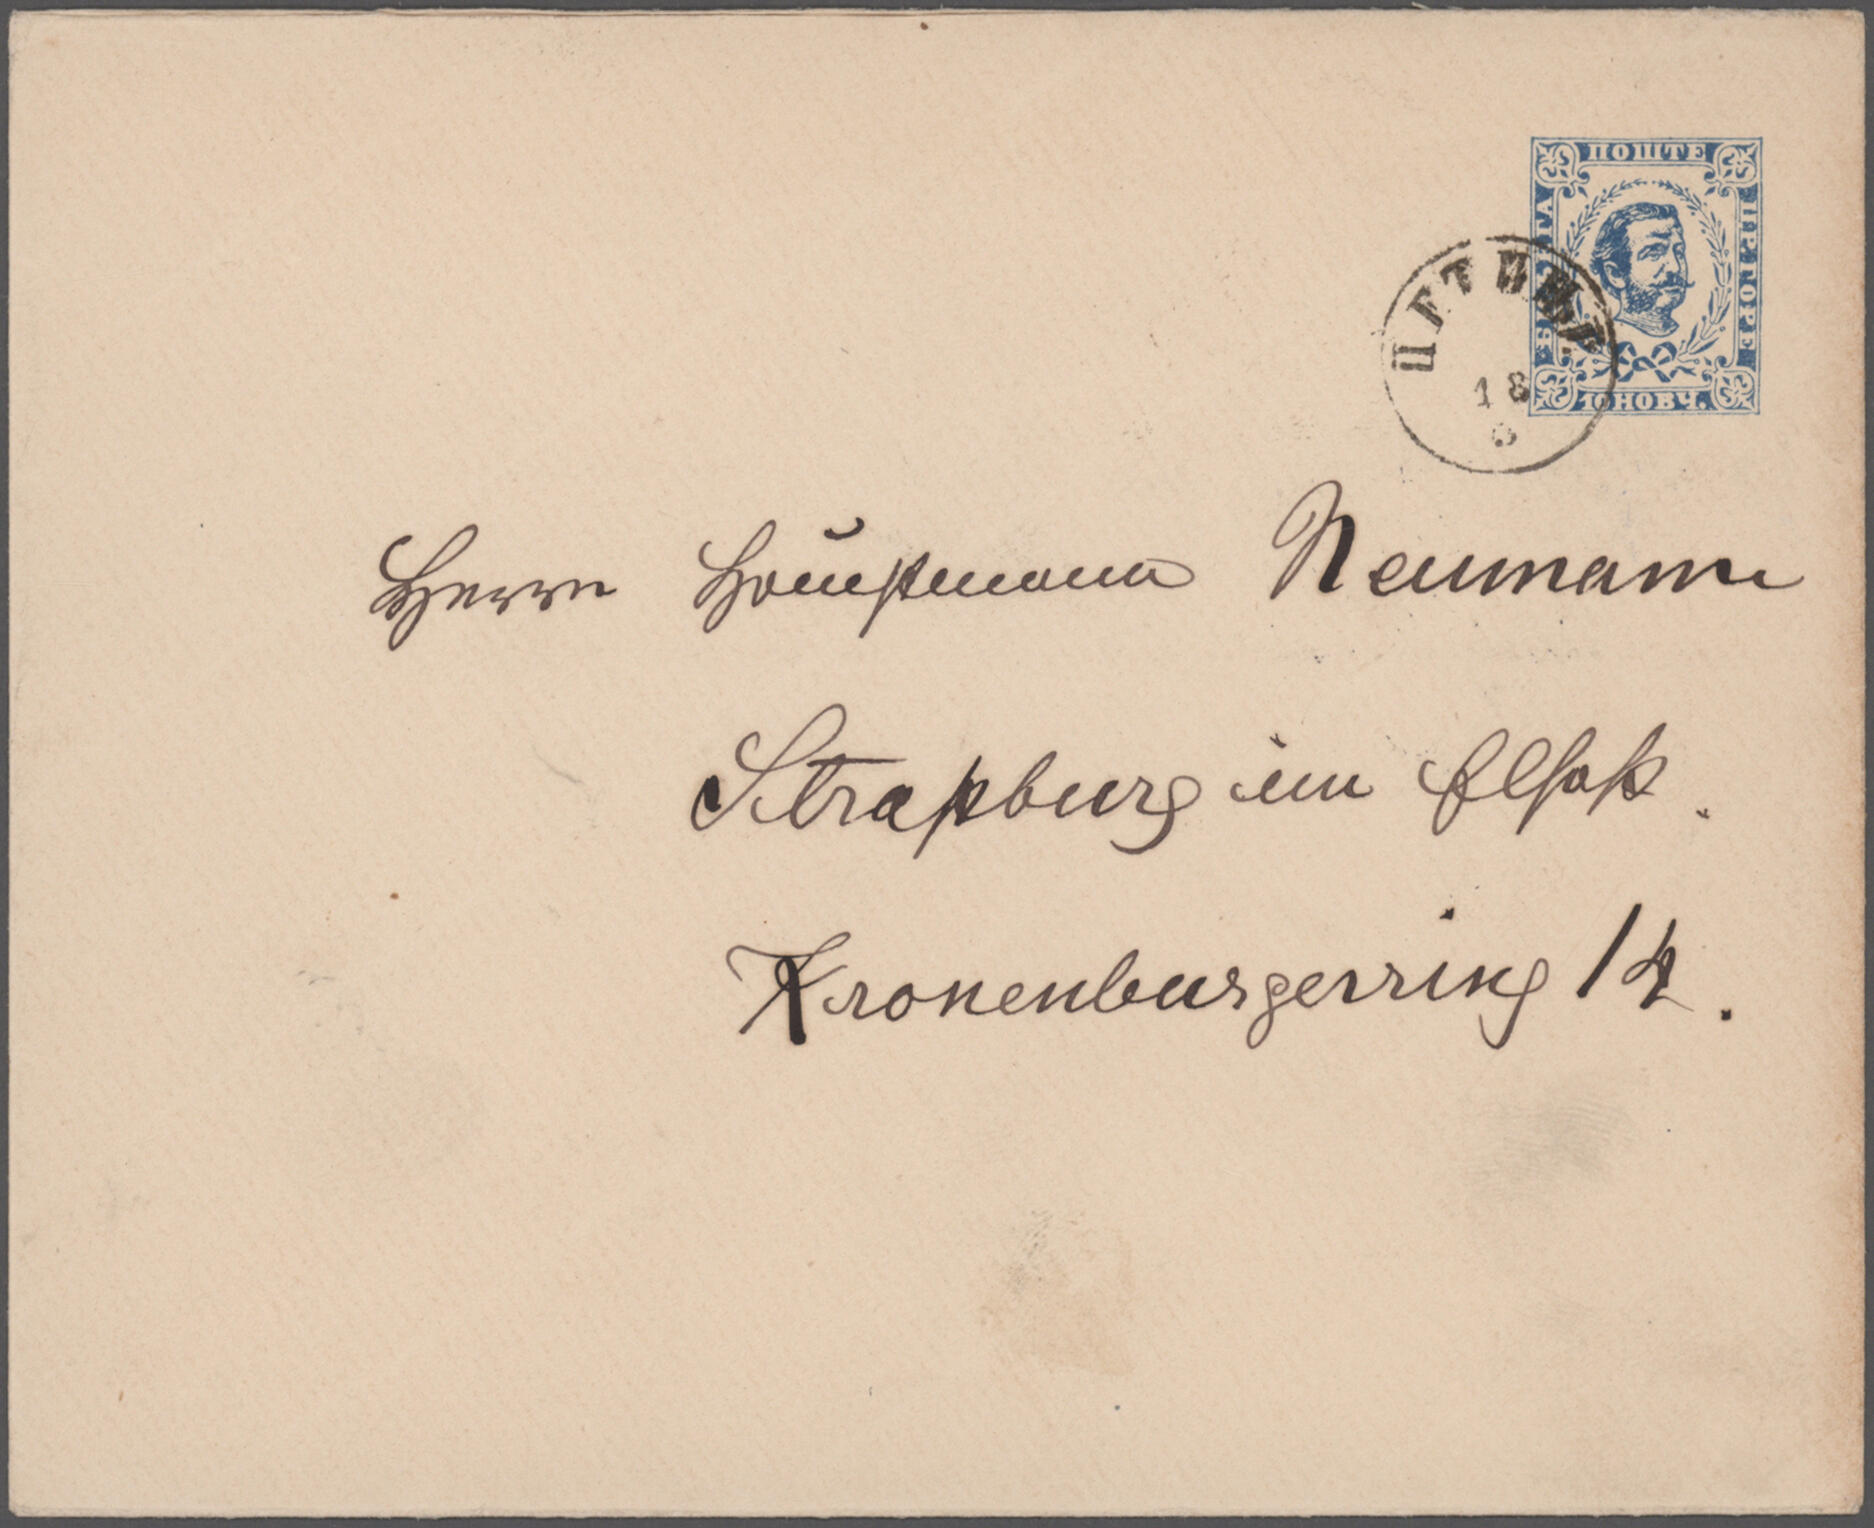 ПОШТЕ
ЦРНЕГОРЕ
10 НОВЧ.
ЦЕТИЊЕ
18
8
Herrn Hauptmann Neumann
Straßburg im Elsaß.
Kronenburgerring 14.